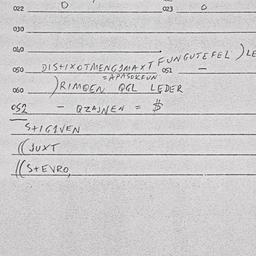 022 O 023 O
030
040
050 DISTIXOTMENGSMAXT FUNGUTEFEL )LE
= APASOKFUN 051 —
060 )RIMQEN QGL LEDER
052 - QZAJNEN = $
STIGIVEN
((JUXT
((STEVRO,